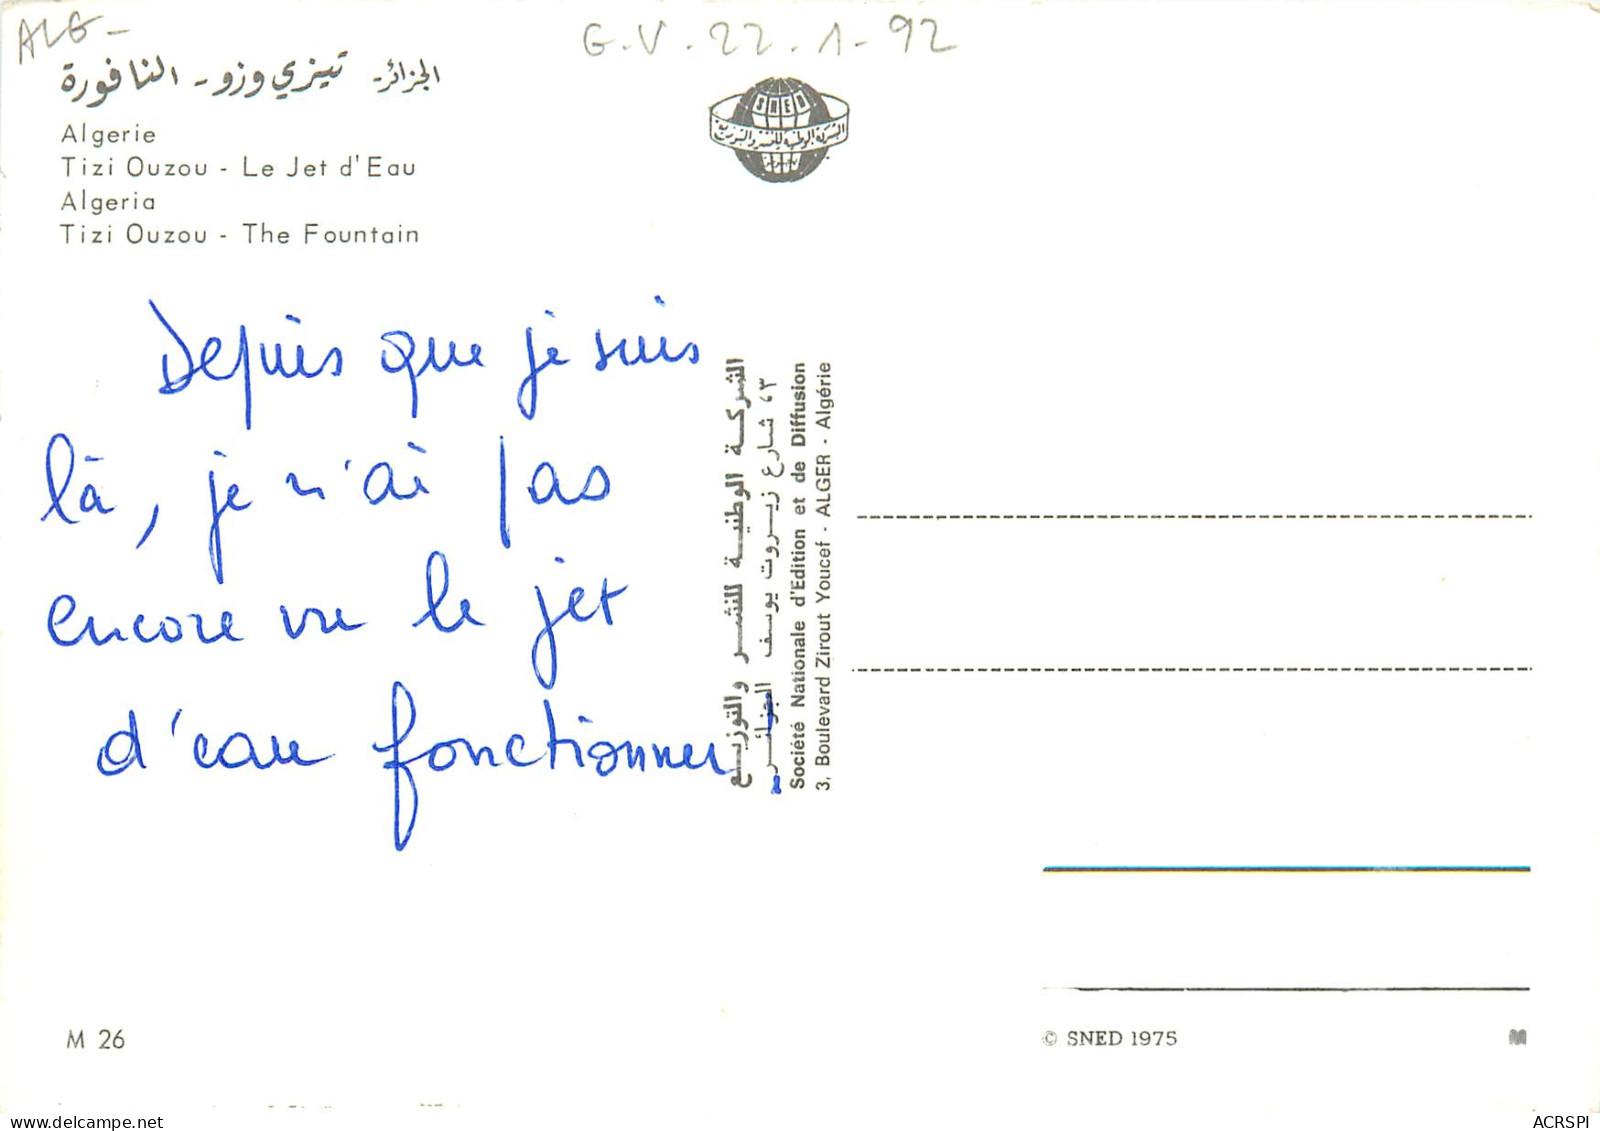 ALG-
G.V. 22.1-92
الجزائر- تيزي وزو - النافورة
Algerie
Tizi Ouzou - Le Jet d'Eau
Algeria
Tizi Ouzou - The Fountain
SNED
الشركة الوطنية للنشر والتوزيع
Depuis que je suis
là, je n'ai pas
encore vu le jet
d'eau fonctionner.
الشركة الوطنية للنشر والتوزيع
٣، شارع زيروت يوسف الجزائر
Société Nationale d'Edition et de Diffusion
3, Boulevard Zirout Youcef - ALGER - Algérie
M 26
© SNED 1975
delcampe.net
ACRSPI